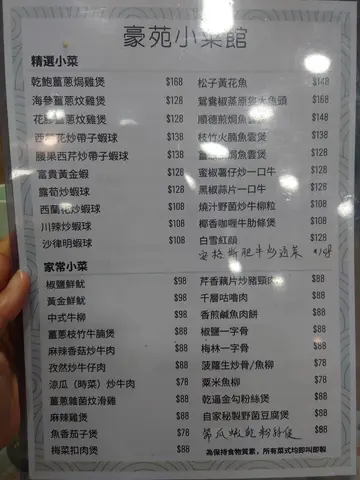 豪苑小菜館
精選小菜
乾鮑薑蔥焗雞煲 $168
海參薑蔥炆雞煲 $128
薑蔥炆雞煲 $128
西 花炒帶子蝦球 $138
腰果西芹炒帶子蝦球 $138
富貴黃金蝦 $128
露荀炒蝦球 $128
西蘭花炒蝦球 $108
川辣炒蝦球 $108
沙律明蝦球 $108
松子黃花魚 $148
鴛鴦椒蒸原隻大魚頭 $168
順德煎焗魚雲煲 $128
枝竹火腩魚雲煲 $138
焗魚雲煲 $128
蜜椒薯仔炒一口牛 $128
黑椒蒜片一口牛 $128
燒汁野菌炒牛柳粒 $108
椰香咖喱牛肋條煲 $108
白雪紅顔 $128
安格斯肥牛炒 菜
家常小菜
椒鹽鮮魷 $98
黃金鮮魷 $98
中式牛柳 $98
薑蔥枝竹牛腩煲 $88
麻辣香菇炒牛肉 $88
孜然炒牛仔肉 $88
涼瓜（時菜）炒牛肉 $78
薑蔥雜菌炆滑雞 $88
麻辣雞煲 $88
魚香茄子煲 $78
梅菜扣肉煲 $88
芹香藕片炒豬頸肉 $88
千層咕嚕肉 $88
香煎鹹魚肉餅 $88
椒鹽一字骨 $88
梅林一字骨 $88
菠蘿生炒骨/魚柳 $78
粟米魚柳 $78
乾逼金勾粉絲煲 $88
自家秘製野菌豆腐煲 $88
節瓜蝦乾粉絲煲 $88
為保持食物質素，所有菜式均即叫即製